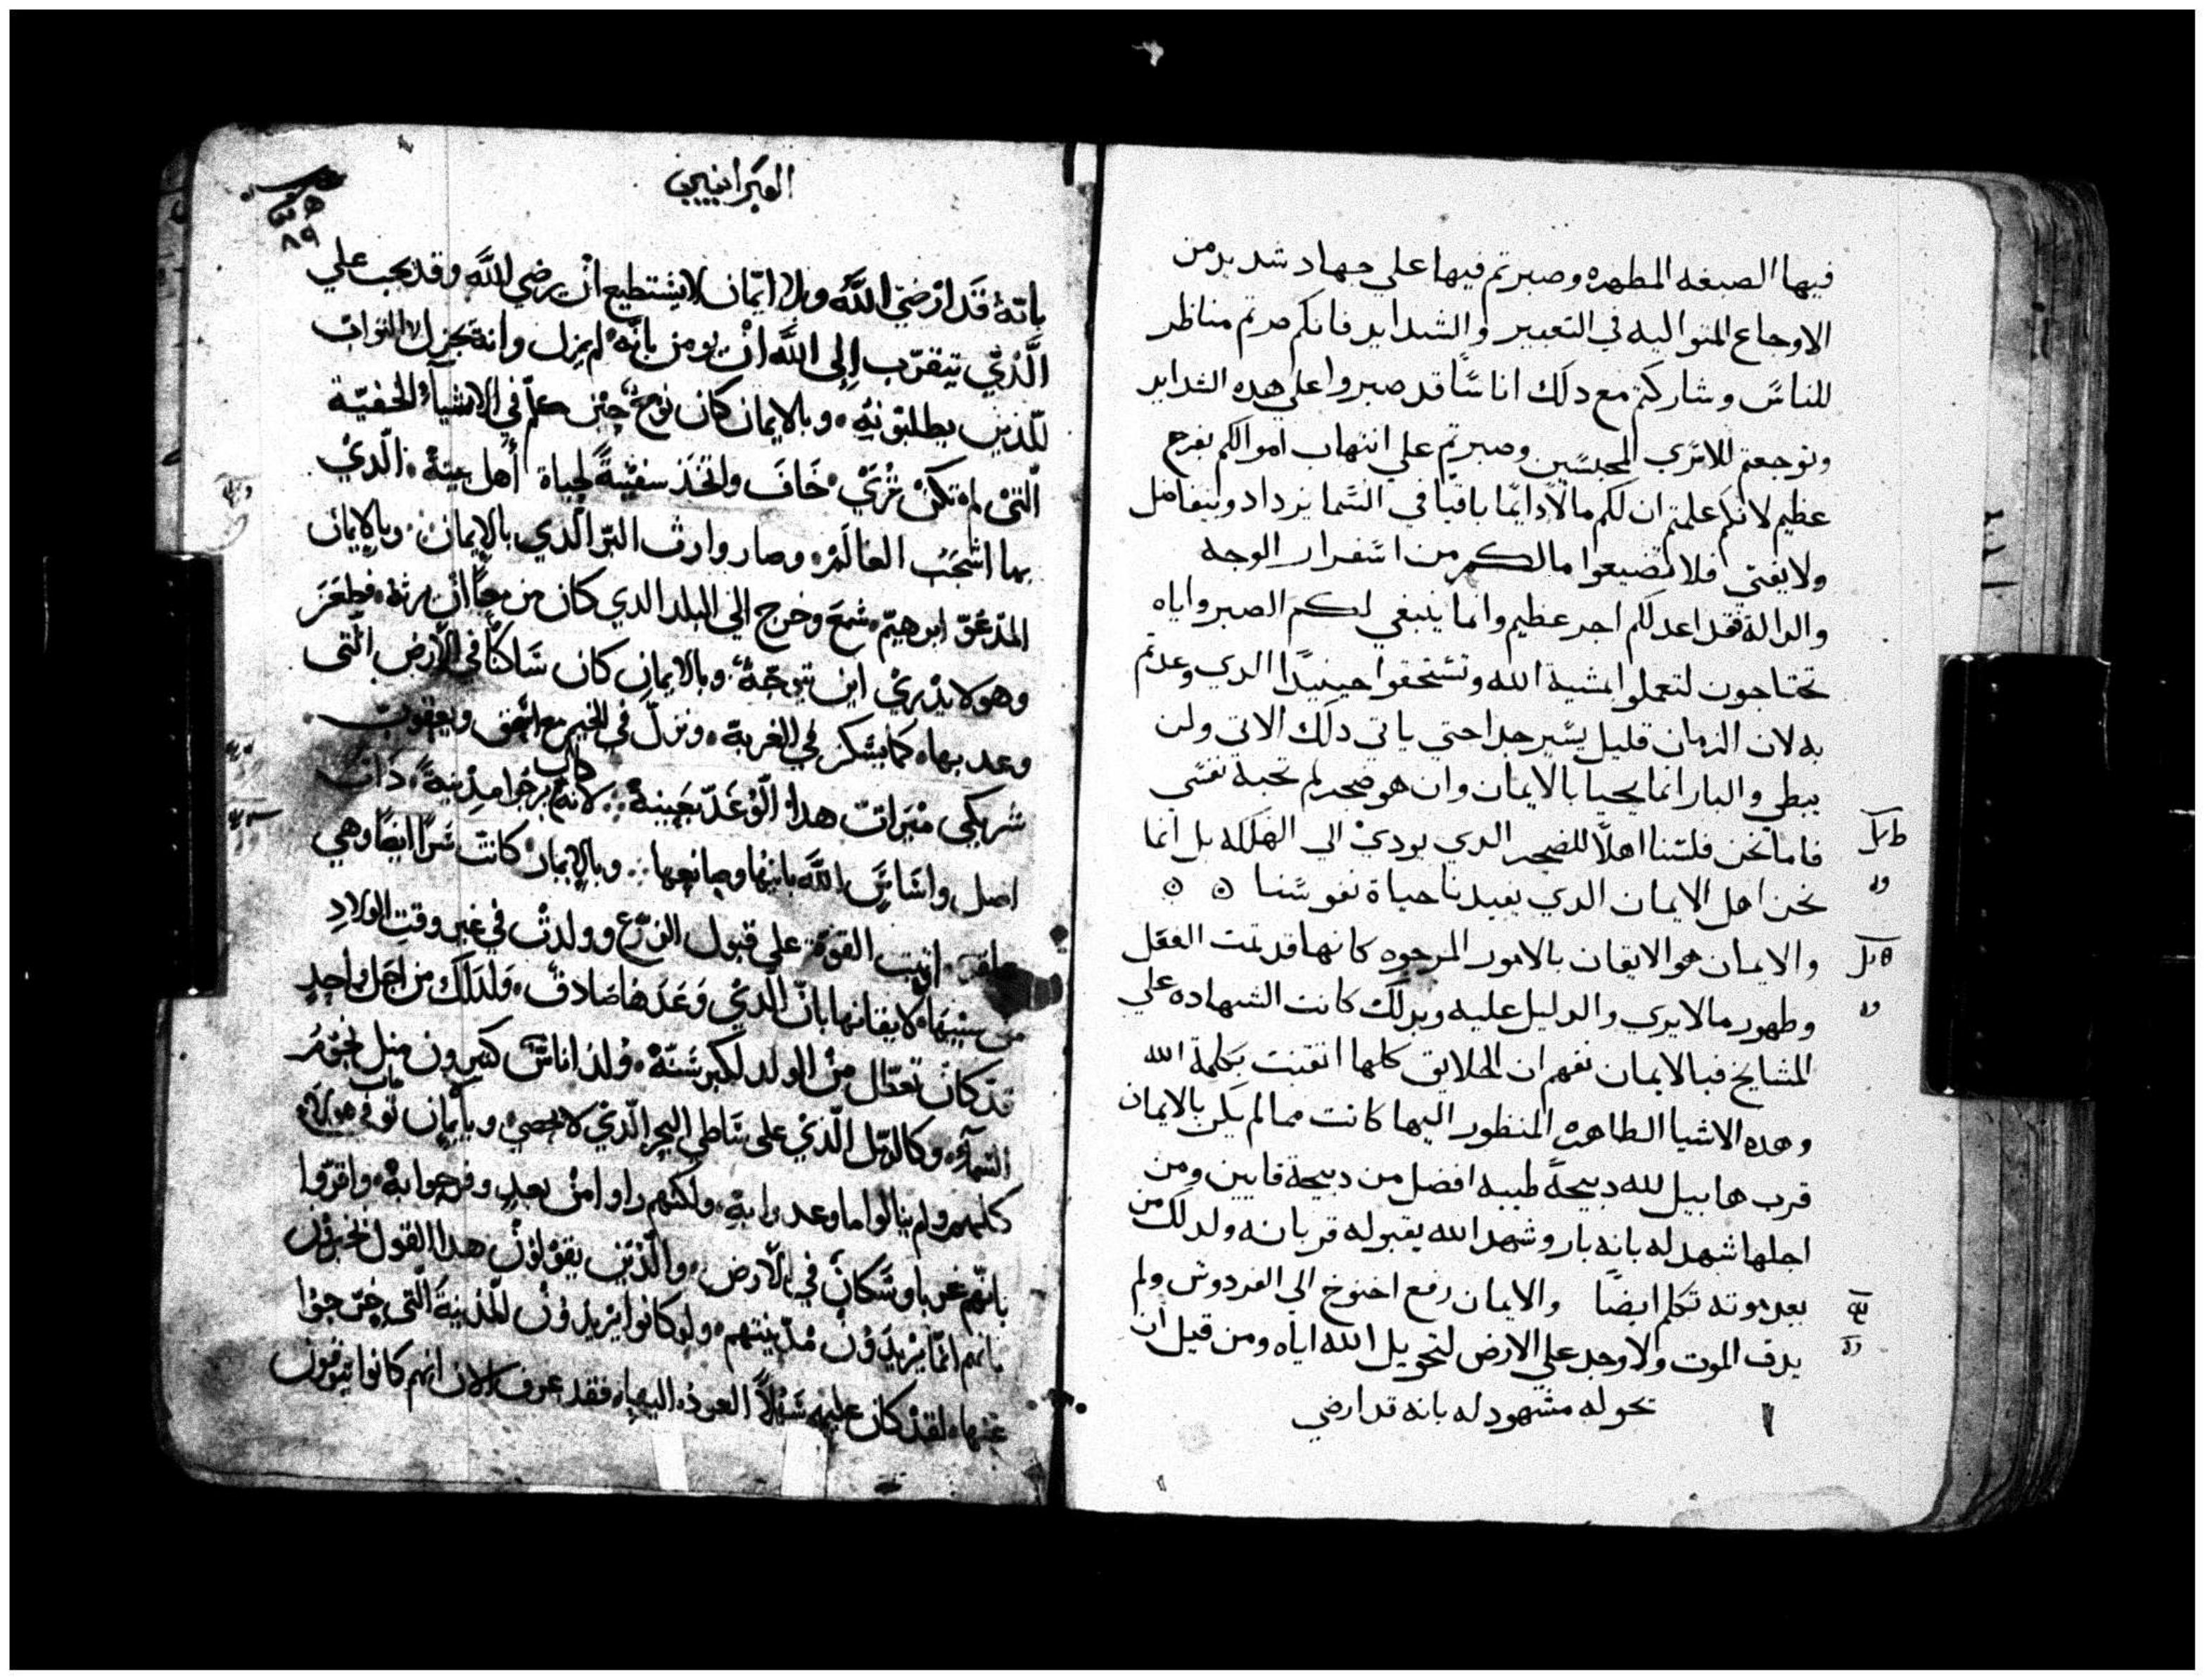 فيها الصبغه المطهره وصبرتم فيها علي جهاد شديد من
الاوجاع المتواليه في التعيير والشدايد فانكم صرتم مناظر
للناس وشاركتم مع دلك اناسًا قد صبروا علي هده الشدايد
وتوجعتم للاسري المحبسين وصبرتم علي انتهاب اموالكم بفرح
عظيم لانكم علمتم ان لكم مالًا دايمًا باقيًا في السما يزداد ويتفاضل
ولا يفني فلا تضيعوا مالكم من اسفرار الوجه
والدالة فقد اعد لكم اجر عظيم وانما ينبغي لكم الصبر واياه
تحتاجون لتعملوا بمشية الله وتستحقوا حينيدًا الدي وعدتم
به لان الزمان قليل يسير جدا حتي ياتي دلك الاتي ولن
يبطي والبار انما يحيا بالايمان وان هو ضجر لم تحبة نفسي
فاما نحن فلسنا اهلًا للضجر الدي يودي الي الهلكه بل انما
نحن اهل الايمان الدي يفيدنا حياة نفوسنا
والايمان هو الايقان بالامور المرجوه كانها قد تمت الفعل
وظهور مالا يري والدليل عليه وبدلك كانت الشهاده علي
المشايخ فبالايمان نفهم ان الخلايق كلها اتقنت بكلمة الله
وهده الاشيا الظاهره المنظور اليها كانت مما لم يكن بالايمان
قرب هابيل لله دبيحةً طيبه افضل من دبيحة قايين ومن
اجلها شهد له بانه بار وشهد الله بقبوله قربانه ولدلك من
بعد موته تكلم ايضًا والايمان رفع اخنوخ الي الفردوس ولم
يدق الموت ولا وجد علي الارض لتحويل الله اياه ومن قبل ان
تحوله مشهود له بانه قد ارضي
العبرانيين
٨٩
بانّهُ قَد ارْضيَ اللَّه وبلا ايمان لا يستطيع انْ يرضي اللَّه وقد يجب علي
الَّذيْ يتقرّب اِلى اللَّه انْ يومن بانّه لم يزل وانه يجزل الثواب
للّذين يطلبونه وبالايمان كان نوح حين كلم في الاشياء الخفيّة
التى لم تكنْ تُرَيْ خَافَ واتخَذ سفيْنةً لحياة أهل بيته الّذيْ
بها اشْجَبَ العَالَمْ وصار وارث البرّ الّذي بالايمان وبالايمان
المدعوّ ابرهيم سَمعَ وخرج الي البلد الدي كان مزمعًا انْ يرثهُ فظعَن
وهو لا يدْريْ اين يتوجّهُ وبالايمان كان سَاكنًا في الأرض التى
وعد بها كما يسَكن في الغربة ونزلَ في الخيم مع اسحق ويعقوب
شريكي ميَراث هدا الوَعْد بعَينهْ لانه كان يرجُوا مدِينةً ذات
اصل واسَاسَ اللَّه بانيْها وصانعها وبالايمان كانتْ سَرّا ايضًا وهي
عاقر اوتيت القوّة علي قبول الزرع وولدتْ في غير وقت الولادِ
من سنيْهَا لايقانها بانّ الدي وَعَدَها صَادقٌ ولدلك من اجل واحدٍ
قد كانْ تعطّل من الولد لكبر سَنّهْ وُلدَ اناسٌ كثيرون مثل نجوْم
السّمآء وكالرمّل الّذيْ على شاطي البحر الّذيْ لا يحصيْ وبايْمان مات هولاء
كلهم ولم ينالوا ما وعدوا بهِ ولكنّهم راوا منْ بعدٍ وفرحوا بهْ واقرّوا
بانّهم غربا وسَكانٌ في الأرض والّذين يقوْلوْن هدا القول يخبرُون
بانهم انمّا يريْدوْن مدْينتهم ولوكانوا يريْدوْن المدْينة الّتى خرجوْا
عنها لقدْ كان عليهم سَهْلًا العودُ اليها فقد عرف الان انهم كانوا يتوقون